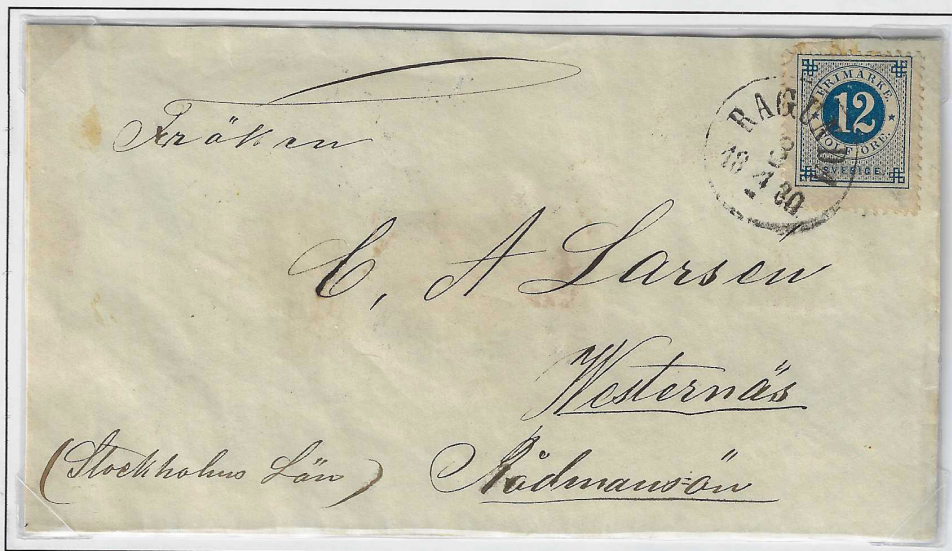 Fröken
RAGUNDA
8
18 4 80
FRIMÄRKE
12
TOLF ÖRE.
SVERIGE
C, A Larsen
Westernäs
(Stockholms Län) Rådmansön